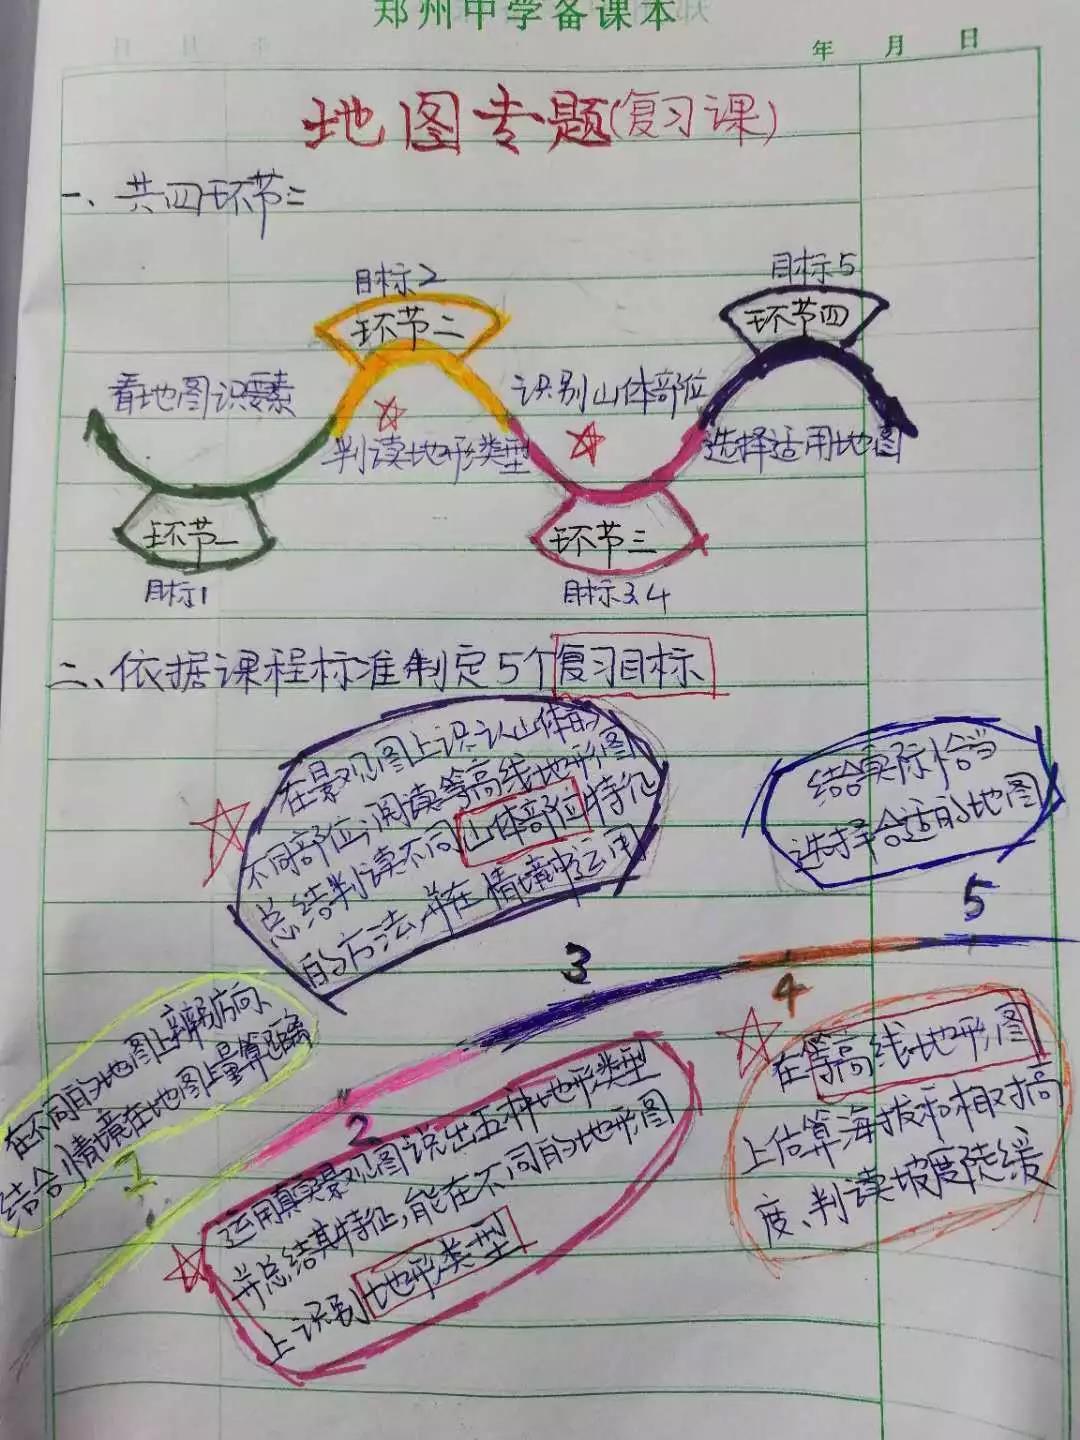 郑州中学备课本
年 月 日
地图专题(复习课)
一、共四环节:
目标2
目标5
环节二
环节四
看地图识要素
识别山体部位
判读地形类型
选择适用地图
环节一
环节三
目标1
目标3、4
二、依据课程标准制定5个复习目标
在景观图上识认山体的
不同部位;阅读等高线地形图
总结判读不同山体部位特征
的方法,并在情境中运用
3
结合实际恰当
选择合适的地图
5
在不同的地图上辨别方向、
结合情境在地图上量算距离
1
2
运用真实景观图说出五种地形类型
并总结其特征,能在不同的地形图
上识别地形类型
4
在等高线地形图
上估算海拔和相对高
度、判读坡度陡缓